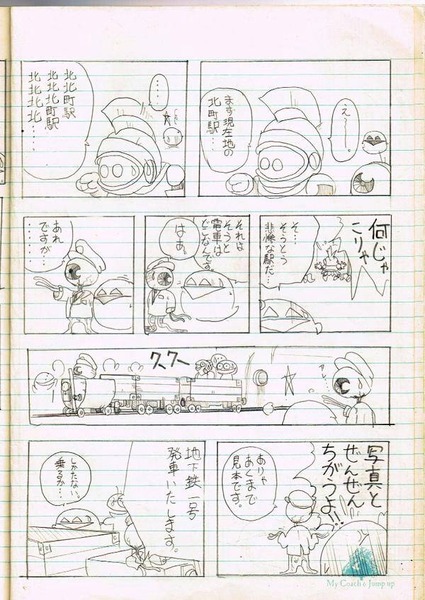 え〜……
まず現在地の
北町駅…
……
北北町駅
北北北町駅
北北北北……
何じゃ
こりゃ
そ…
そうとう
悲惨な駅だ…
それは
そうと
電車は
どこなんです
はぁ。
あれ
ですが…
……
アレ
クスクス
写真と
ぜんぜん
ちがうよ!!
ありゃ
あくまで
見本です。
地下鉄一号
発車いたします。
しかたない、
乗るか…。
My Coach & Jump up